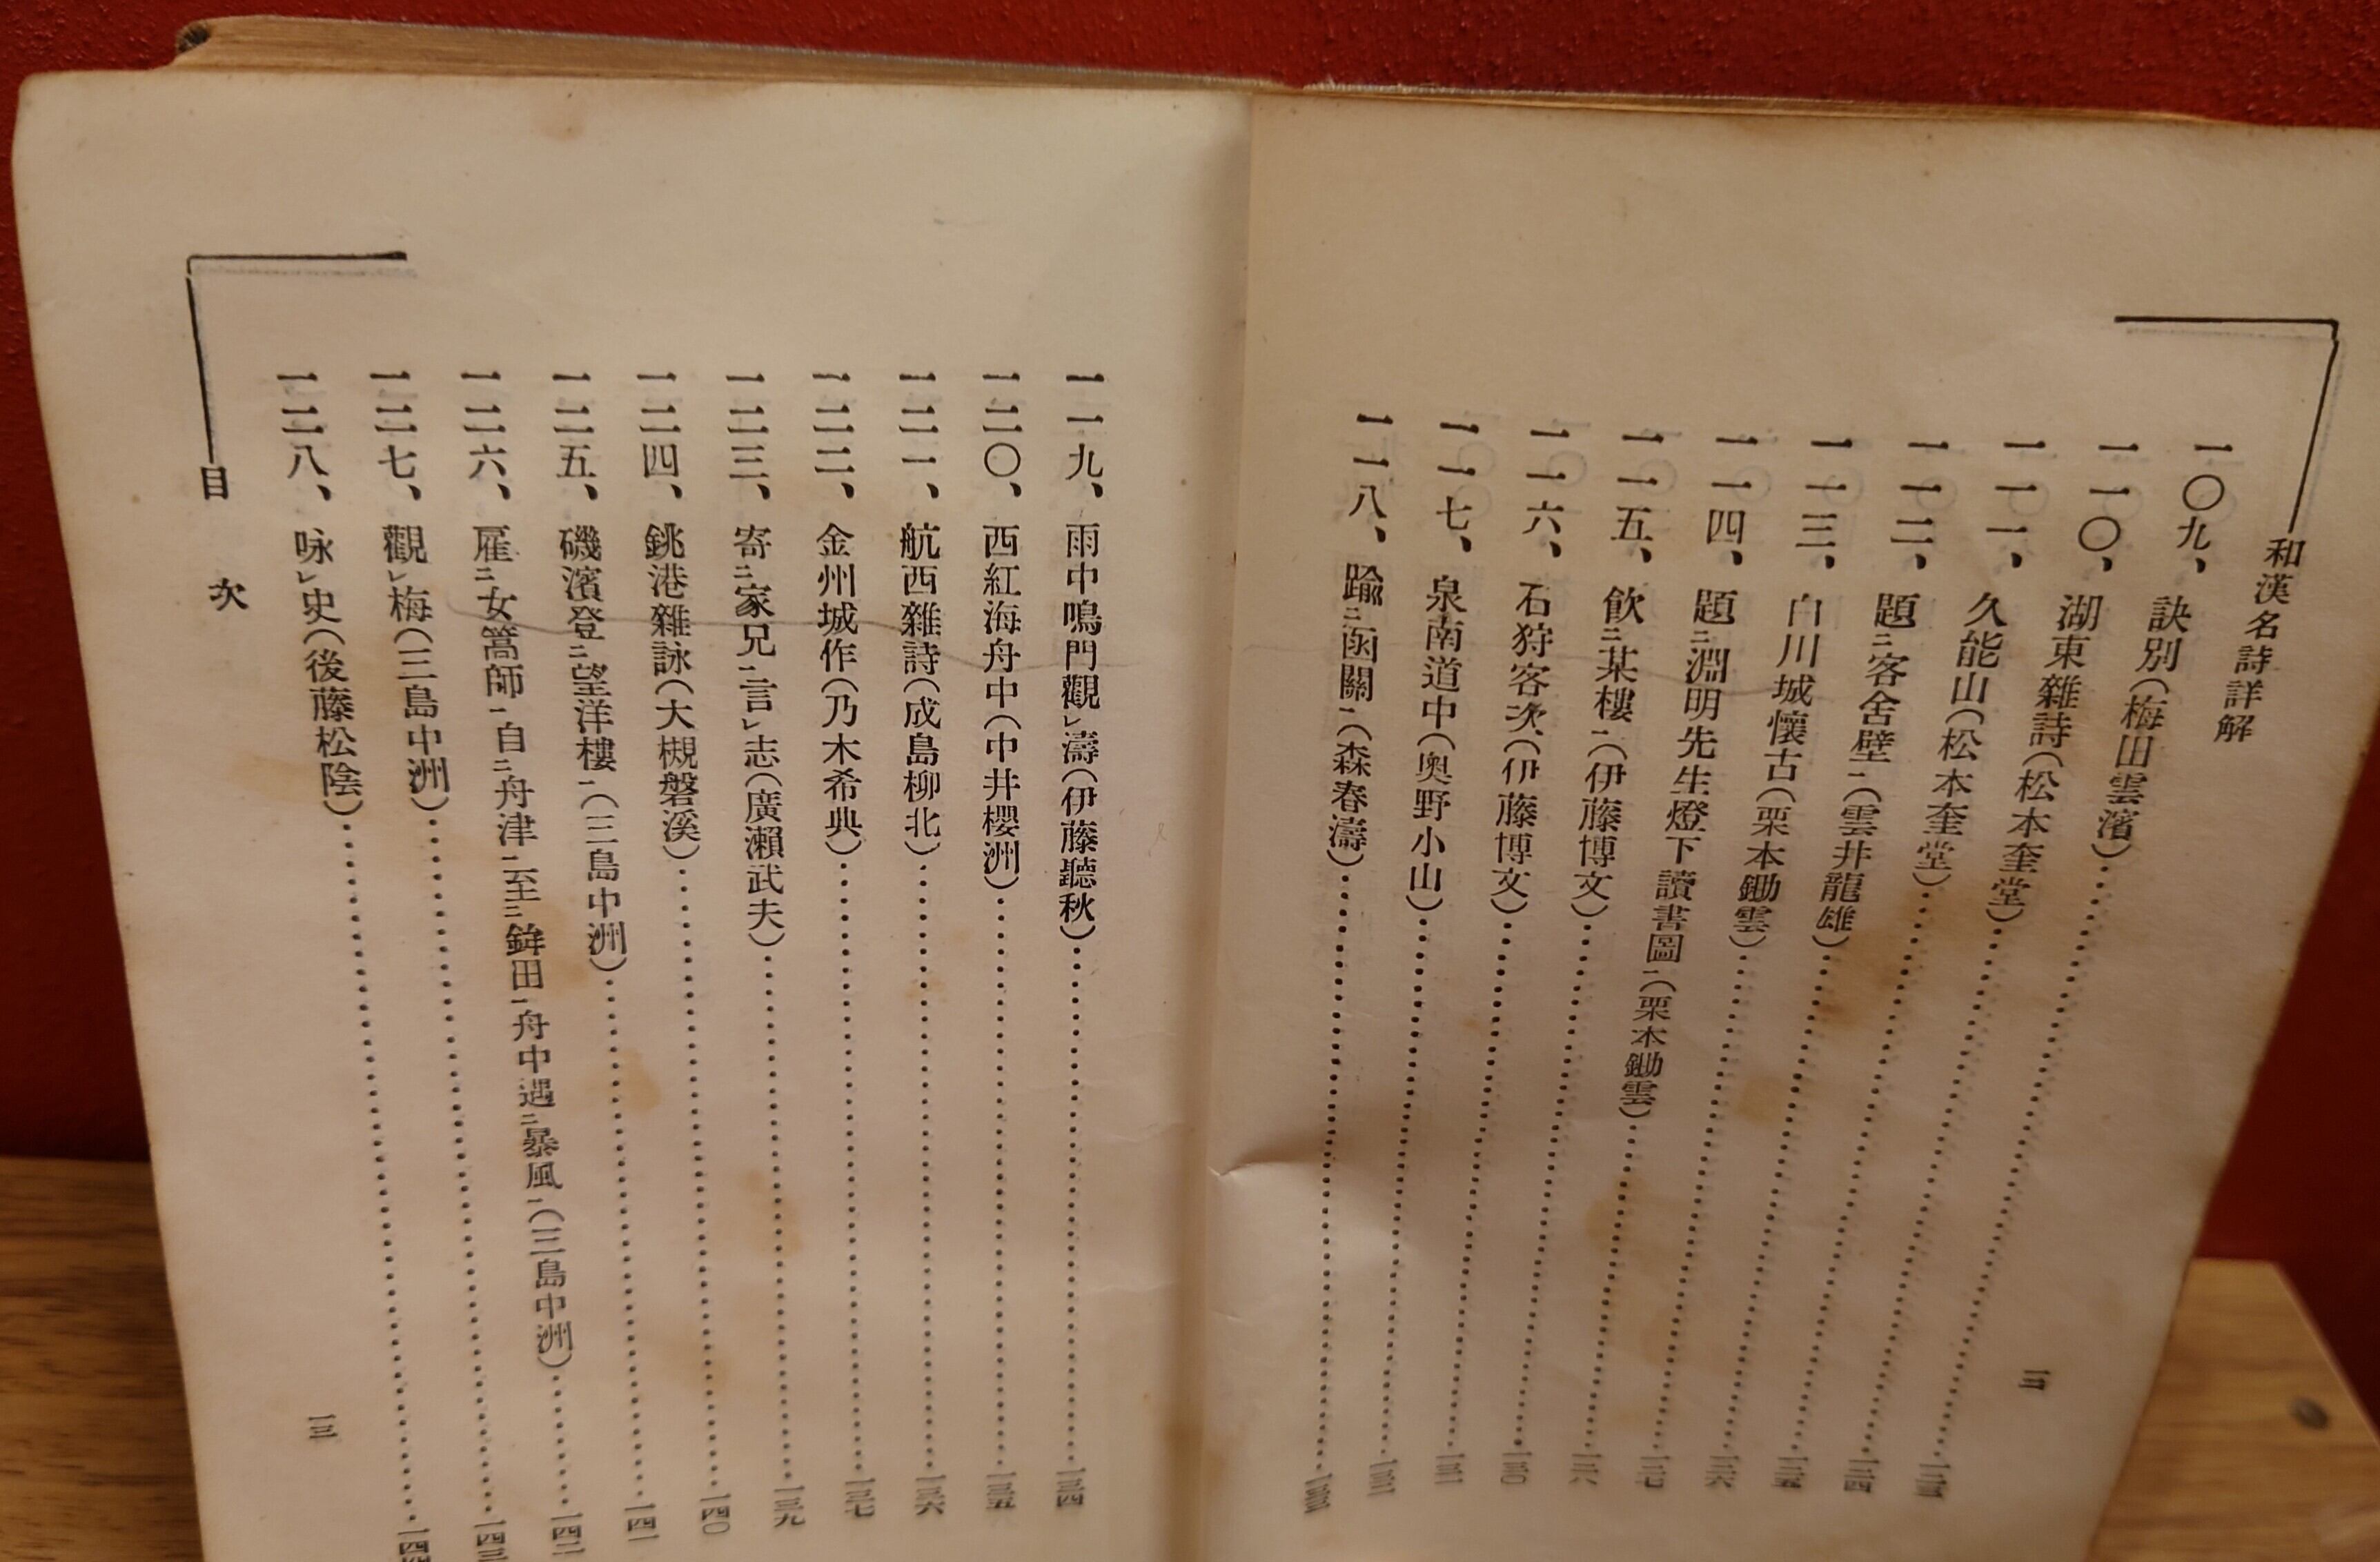 和漢名詩詳解
一〇九、訣別(梅田雲濱)……一二三
一一〇、湖東雜詩(松本奎堂)……一二四
一一一、久能山(松本奎堂)……一二五
一一二、題二客舍壁一(雲井龍雄)……一二六
一一三、白川城懷古(栗本鋤雲)……一二七
一一四、題二淵明先生燈下讀書圖一(栗本鋤雲)
一一五、飮二某樓一(伊藤博文)……一三〇
一一六、石狩客次(伊藤博文)……一三一
一一七、泉南道中(奥野小山)……一三二
一一八、踰二函關一(森春濤)……一三三
一二
一一九、雨中鳴門觀レ濤(伊藤聽秋)……一三四
一二〇、西紅海舟中(中井櫻洲)……一三五
一二一、航西雜詩(成島柳北)……一三六
一二二、金州城作(乃木希典)……一三七
一二三、寄二家兄一言レ志(廣瀨武夫)……一三九
一二四、銚港雜詠(大槻磐溪)……一四〇
一二五、磯濱登二望洋樓一(三島中洲)……一四一
一二六、雇二女篙師一自二舟津一至二鉾田一舟中遇二暴風一(三島中洲)……一四二
一二七、觀レ梅(三島中洲)……一四三
一二八、咏レ史(後藤松陰)……一四四
目次
一三